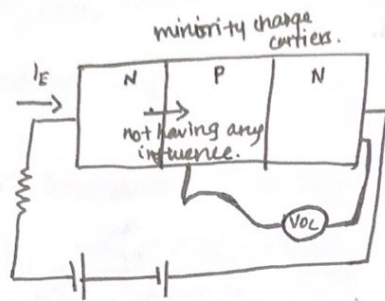 minority charge
carriers.
IE
N P N
not having any
influence.
VOL